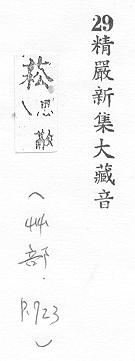 29精嚴新集大藏音
菘思融
（艸部．
P.723）